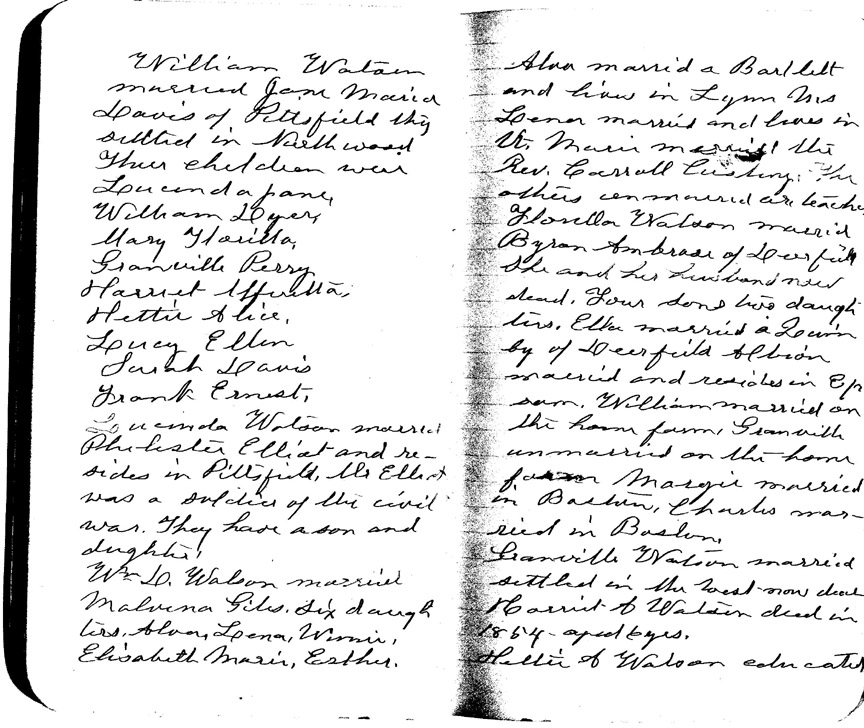 William Watson
married Jane Maria
Davis of Pittsfield they
settled in Northwood
Their children were
Lucinda Jane,
William Dyer,
Mary Florilla,
Granville Perry
Harriet
Hettie Alice,
Lucy Ellen
Sarah Davis
Frank Ernest,
Lucinda Watson married
Philester Elliot and re-
sides in Pittsfield, Mr Elliot
was a soldier of the civil
war. They have a son and
dughter,
Wm D. Watson married
Malvena Giles. six daugh
ters. Alva, Lena, Winnie,
Elisabeth Marie, Esther.
Alva married a Bartlett
and lives in Lynn Mss
Lena married and lives in
Vt. Marie married the
Rev. Carroll Cushing. The
others unmarried are teache
Florilla Watson married
Byron Ambrose of Deerfield
She and her husband now
dead. Four sons two daugh
ters. Ella married a
by of Deerfield Albion
married and resides in Ep
som. William married on
the home farm, Granville
unmarried on the home
farm Margie married
in Boston, Charles mar-
ried in Boston,
Granville Watson married
settled in the west now dead
Harriet A Watson died in
1854 - aged 6 yrs.
Hettie A Watson educated